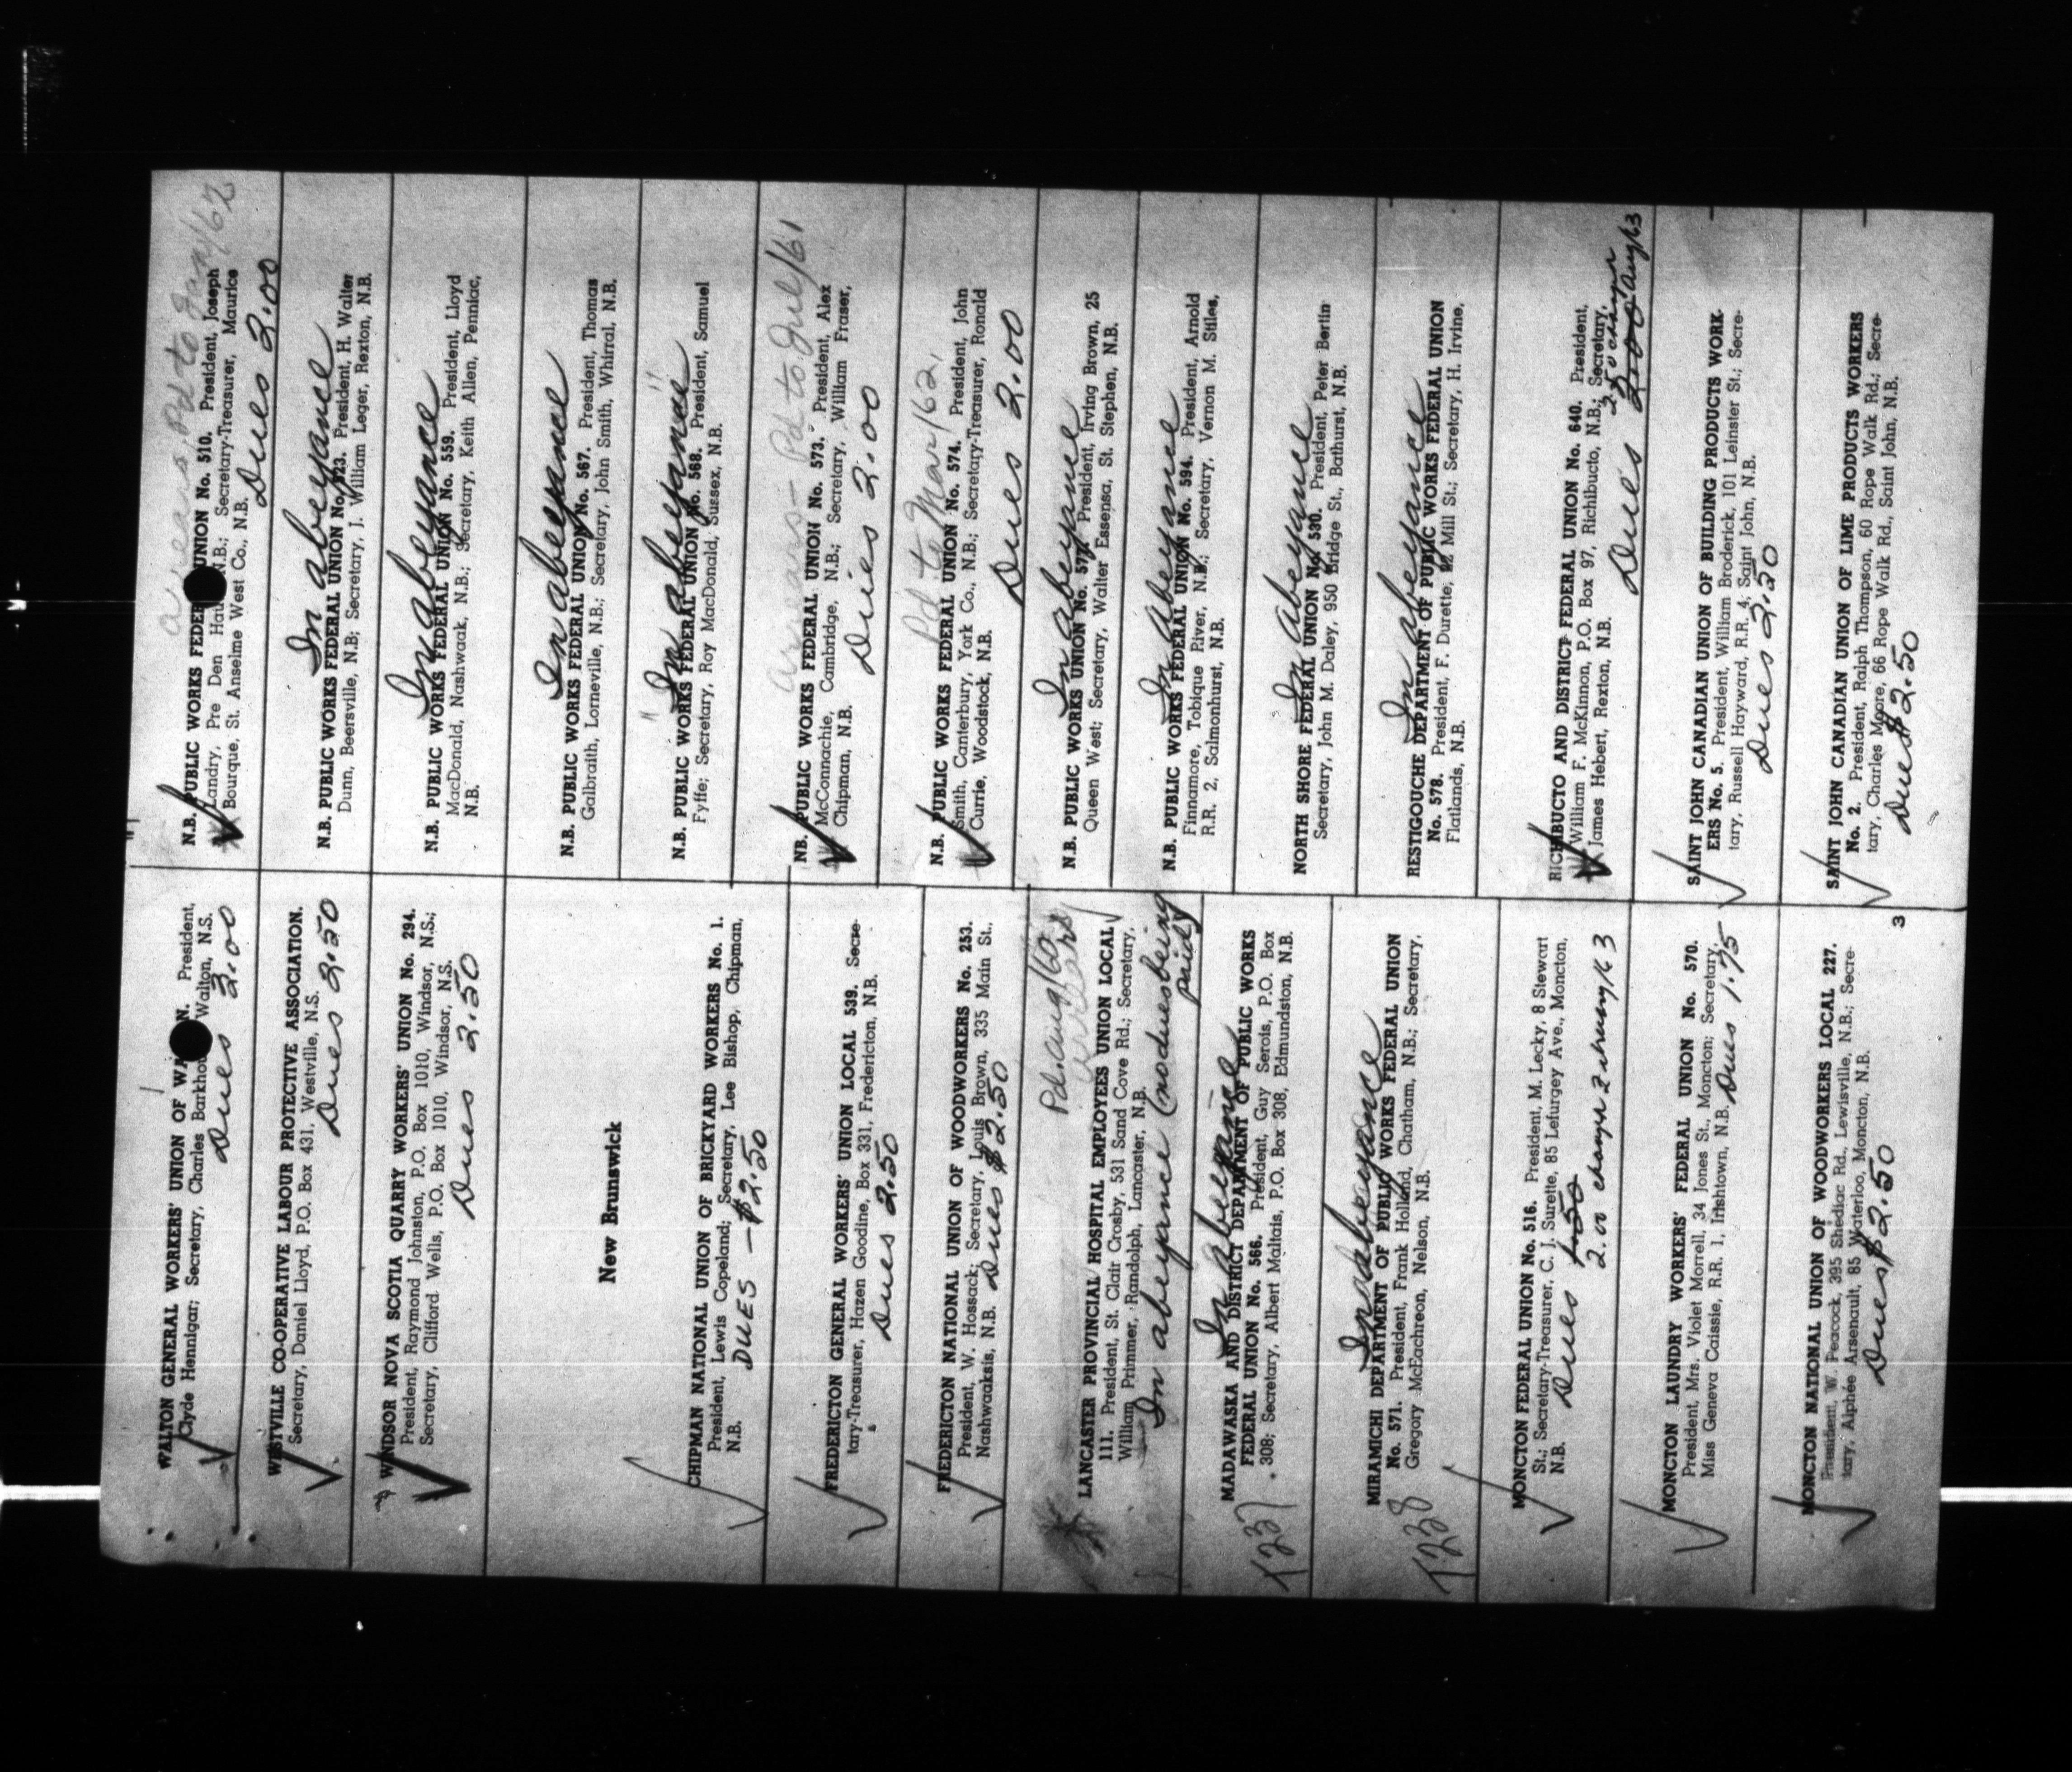 WALTON GENERAL WORKERS' UNION OF WA N. President,
Clyde Hennigar; Secretary, Charles Barkhou Walton, N.S.
Dues 2.00
WESTVILLE CO-OPERATIVE LABOUR PROTECTIVE ASSOCIATION.
Secretary, Daniel Lloyd, P.O. Box 431, Westville, N.S.
Dues 2.50
WINDSOR NOVA SCOTIA QUARRY WORKERS' UNION No. 294.
President, Raymond Johnston, P.O. Box 1010, Windsor, N.S.;
Secretary, Clifford Wells, P.O. Box 1010, Windsor, N.S.
Dues 2.50
New Brunswick
CHIPMAN NATIONAL UNION OF BRICKYARD WORKERS No. 1.
President, Lewis Copeland; Secretary, Lee Bishop, Chipman,
N.B.
DUES - $2.50
FREDERICTON GENERAL WORKERS' UNION LOCAL 539. Secre-
tary-Treasurer, Hazen Goodine, Box 331, Fredericton, N.B.
Dues 2.50
FREDERICTON NATIONAL UNION OF WOODWORKERS No. 253.
President, W. Hossack; Secretary, Louis Brown, 335 Main St.,
Nashwaaksis, N.B. Dues $2.50
Pd. aug/60
arrears
LANCASTER PROVINCIAL HOSPITAL EMPLOYEES UNION LOCAL
111. President, St. Clair Crosby, 531 Sand Cove Rd.; Secretary,
William Primmer, Randolph, Lancaster, N.B.
In abeyance (no dues being
paid)
In abeyance
MADAWASKA AND DISTRICT DEPARTMENT OF PUBLIC WORKS
FEDERAL UNION No. 566. President, Guy Serois, P.O. Box
308; Secretary, Albert Maltais, P.O. Box 308, Edmundston, N.B.
1237
In abeyance
MIRAMICHI DEPARTMENT OF PUBLIC WORKS FEDERAL UNION
No. 571. President, Frank Holland, Chatham, N.B.; Secretary,
Gregory McEachreon, Nelson, N.B.
1238
MONCTON FEDERAL UNION No. 516. President, M. Lecky, 8 Stewart
St.; Secretary-Treasurer, C. J. Surette, 85 Lefurgey Ave., Moncton,
N.B. Dues 1.50
2.00
MONCTON LAUNDRY WORKERS' FEDERAL UNION No. 570.
President, Mrs. Violet Morrell, 34 Jones St., Moncton; Secretary,
Miss Geneva Caissie, R.R. 1, Irishtown, N.B. Dues 1.75
MONCTON NATIONAL UNION OF WOODWORKERS LOCAL 227.
President, W. Peacock, 395 Shediac Rd., Lewisville, N.B.; Secre-
tary, Alphée Arsenault, 85 Waterloo, Moncton, N.B.
Dues $2.50
3
arrears Pd to Jan/62
N.B. PUBLIC WORKS FEDER UNION No. 510. President, Joseph
Landry, Pre Den Hau N.B.; Secretary-Treasurer, Maurice
Bourque, St. Anselme West Co., N.B.
Dues 2.00
In abeyance
N.B. PUBLIC WORKS FEDERAL UNION No. 523. President, H. Walter
Dunn, Beersville, N.B; Secretary, J. William Leger, Rexton, N.B.
In abeyance
N.B. PUBLIC WORKS FEDERAL UNION No. 559. President, Lloyd
MacDonald, Nashwaak, N.B.; Secretary, Keith Allen, Penniac,
N.B.
In abeyance
N.B. PUBLIC WORKS FEDERAL UNION No. 567. President, Thomas
Galbraith, Lorneville, N.B.; Secretary, John Smith, Whirral, N.B.
" In abeyance "
N.B. PUBLIC WORKS FEDERAL UNION No. 568. President, Samuel
Fyffe; Secretary, Roy MacDonald, Sussex, N.B.
arrears - Pd to Jul/61
NB. PUBLIC WORKS FEDERAL UNION No. 573. President, Alex
McConnachie, Cambridge, N.B.; Secretary, William Fraser,
Chipman, N.B.
Dues 2.00
Pd. to Mar/62.
N.B. PUBLIC WORKS FEDERAL UNION No. 574. President, John
Smith, Canterbury, York Co., N.B.; Secretary-Treasurer, Ronald
Currie, Woodstock, N.B.
Dues 2.00
In abeyance
N.B. PUBLIC WORKS UNION No. President, Irving Brown, 25
Queen West; Secretary, Walter Essensa, St. Stephen, N.B.
In abeyance
N.B. PUBLIC WORKS FEDERAL UNION No. 594. President, Arnold
Finnamore, Tobique River, N.B.; Secretary, Vernon M. Stiles,
R.R. 2, Salmonhurst, N.B.
In abeyance
NORTH SHORE FEDERAL UNION No. 530. President, Peter Bertin
Secretary, John M. Daley, 950 Bridge St., Bathurst, N.B.
In abeyance
RESTIGOUCHE DEPARTMENT OF PUBLIC WORKS FEDERAL UNION
No. 578. President, F. Durette, 12 Mill St.; Secretary, H. Irvine,
Flatlands, N.B.
RICHIBUCTO AND DISTRICT FEDERAL UNION No. 640. President,
William F. McKinnon, P.O. Box 97, Richibucto, N.B.; Secretary,
James Hebert, Rexton, N.B.
Dues 2.00 Aug/63
SAINT JOHN CANADIAN UNION OF BUILDING PRODUCTS WORK-
ERS No. 5. President, William Broderick, 101 Leinster St.; Secre-
tary, Russell Hayward, R.R. 4, Saint John, N.B.
Dues 2.50
SAINT JOHN CANADIAN UNION OF LIME PRODUCTS WORKERS
No. 2. President, Ralph Thompson, 60 Rope Walk Rd.; Secre-
tary, Charles Moore, 66 Rope Walk Rd., Saint John, N.B.
Dues $2.50